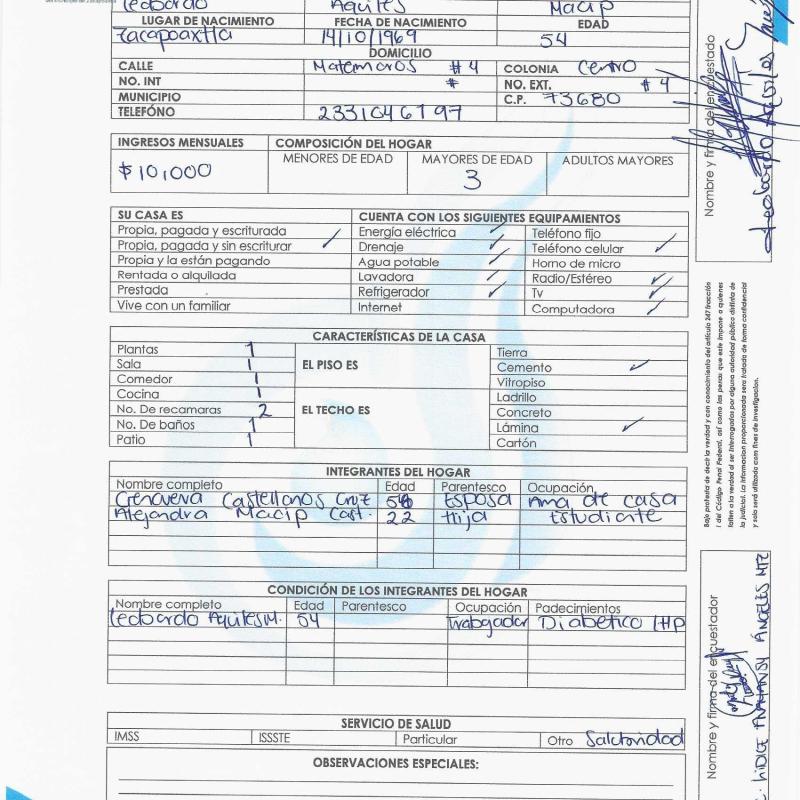 Leobardo Aquiles Macip
LUGAR DE NACIMIENTO FECHA DE NACIMIENTO EDAD
Zacapoaxtla 14/10/1969 54
DOMICILIO
CALLE Matamoros #4 COLONIA Centro
NO. INT # NO. EXT. #4
MUNICIPIO C.P. 73680
TELÉFONO 2331046797
INGRESOS MENSUALES COMPOSICIÓN DEL HOGAR
$10,000 MENORES DE EDAD MAYORES DE EDAD 3 ADULTOS MAYORES
SU CASA ES CUENTA CON LOS SIGUIENTES EQUIPAMIENTOS
Propia, pagada y escriturada Energía eléctrica ✓ Teléfono fijo
Propia, pagada y sin escriturar ✓ Drenaje ✓ Teléfono celular ✓
Propia y la están pagando Agua potable ✓ Horno de micro
Rentada o alquilada Lavadora ✓ Radio/Estéreo ✓
Prestada Refrigerador ✓ Tv ✓
Vive con un familiar Internet Computadora ✓
CARACTERÍSTICAS DE LA CASA
Plantas 1 Tierra
Sala 1 EL PISO ES Cemento ✓
Comedor 1 Vitropiso
Cocina 1 Ladrillo
No. De recamaras 2 EL TECHO ES Concreto
No. De baños 1 Lámina ✓
Patio 1 Cartón
INTEGRANTES DEL HOGAR
Nombre completo Edad Parentesco Ocupación
Castellanos Cruz Esposa Ama de casa
Alejandra Macip Cast. 22 Hija Estudiante
CONDICIÓN DE LOS INTEGRANTES DEL HOGAR
Nombre completo Edad Parentesco Ocupación Padecimientos
Leobardo Aquiles M. 54 Diabetico
SERVICIO DE SALUD
IMSS ISSSTE Particular Otro
OBSERVACIONES ESPECIALES:
Nombre y firma del encuestado
Bajo protesta de decir la verdad y con conocimiento del artículo 247 fracción
I del Código Penal Federal, así como las penas que este impone a quienes
falten a la verdad al ser interrogados por alguna autoridad pública distinta de
la judicial. La información proporcionada sera tratada de forma confidencial
y solo será utilizada con fines de investigación.
Nombre y firma del encuestador